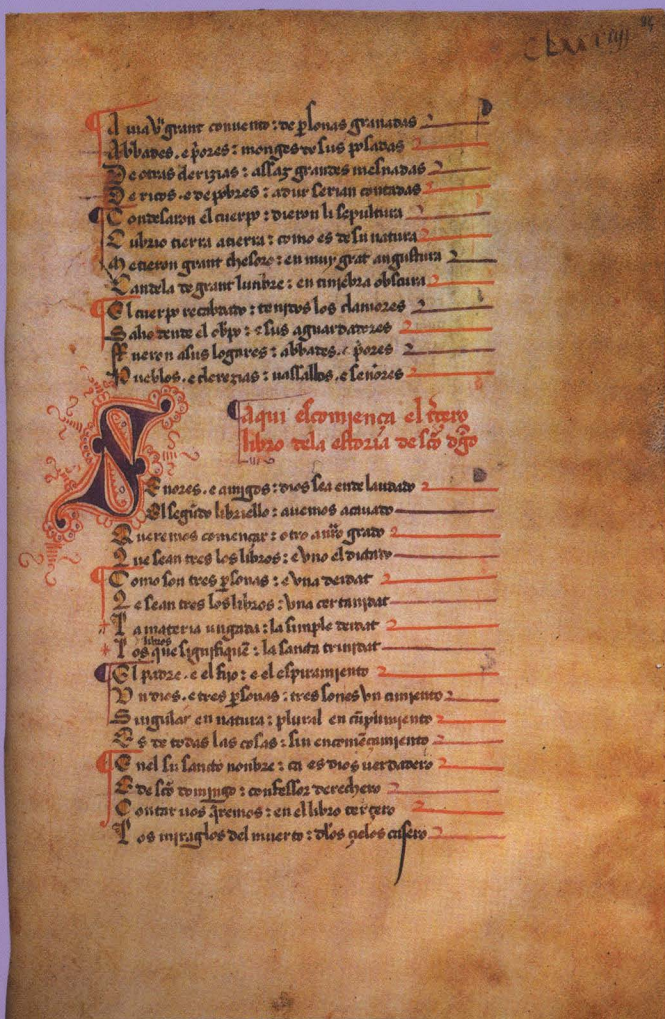 94
clxxviij
Auia y grant conuento : de psonas granadas
Abbades . e pores : monges de sus posadas
De otras clerizias : assaz grandes mesnadas
De ricos . e de pobres : adur serian contadas
Condesaron el cuerpo : dieron li sepultura
Cubrio tierra a tierra : como es de su natura
Metieron grant thesoro : en muy grat angustura
Candela de grant lunbre : en tiniebra obscura
El cuerpo recabdado : tenidos los clamores
Salio dende el obpo : e sus aguardadores
Fueron a sus logares : abbades . e pores
Pueblos . e clerezias : uassallos . e senores
aqui escomiença el tcero
libro dela estoria de sco dgo
Senores . e amigos : dios sea ende laudado
El segudo libriello : auemos acauado
Queremos començar : otro a nro grado
Que sean tres los libros : e vno el dictado
Como son tres psonas : e vna deidat
Que sean tres los libros : vna certanidat
La materia ungada : la simple deidat
Los libros que signifique : la sancta trinidat
El padre . e el fijo : e el espiramiento
Vn dios . e tres psonas : tres sones vn cimiento
Singular en natura : plural en cuplimiento
Es de todas las cosas : sin encomeçamiento
Enel su sancto nonbre : ca es dios verdadero
E de sco domingo : confessor derechero
Contar uos qremos : en el libro tercero
Los miraglos del muerto : dlos çielos casero